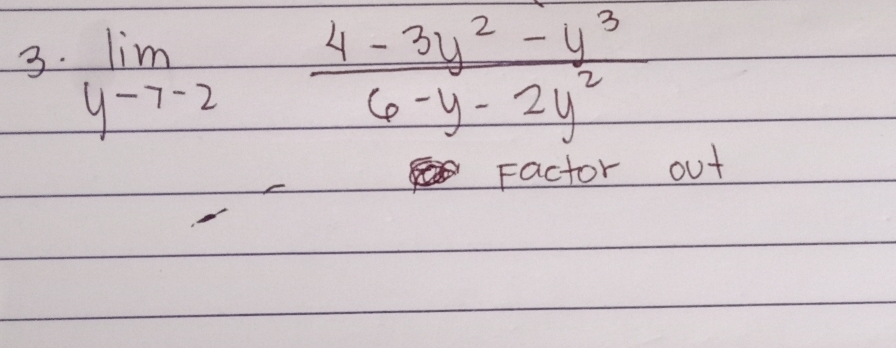 3. lim 4 - 3y² - y³
y→-2 6 - y - 2y²
Factor out